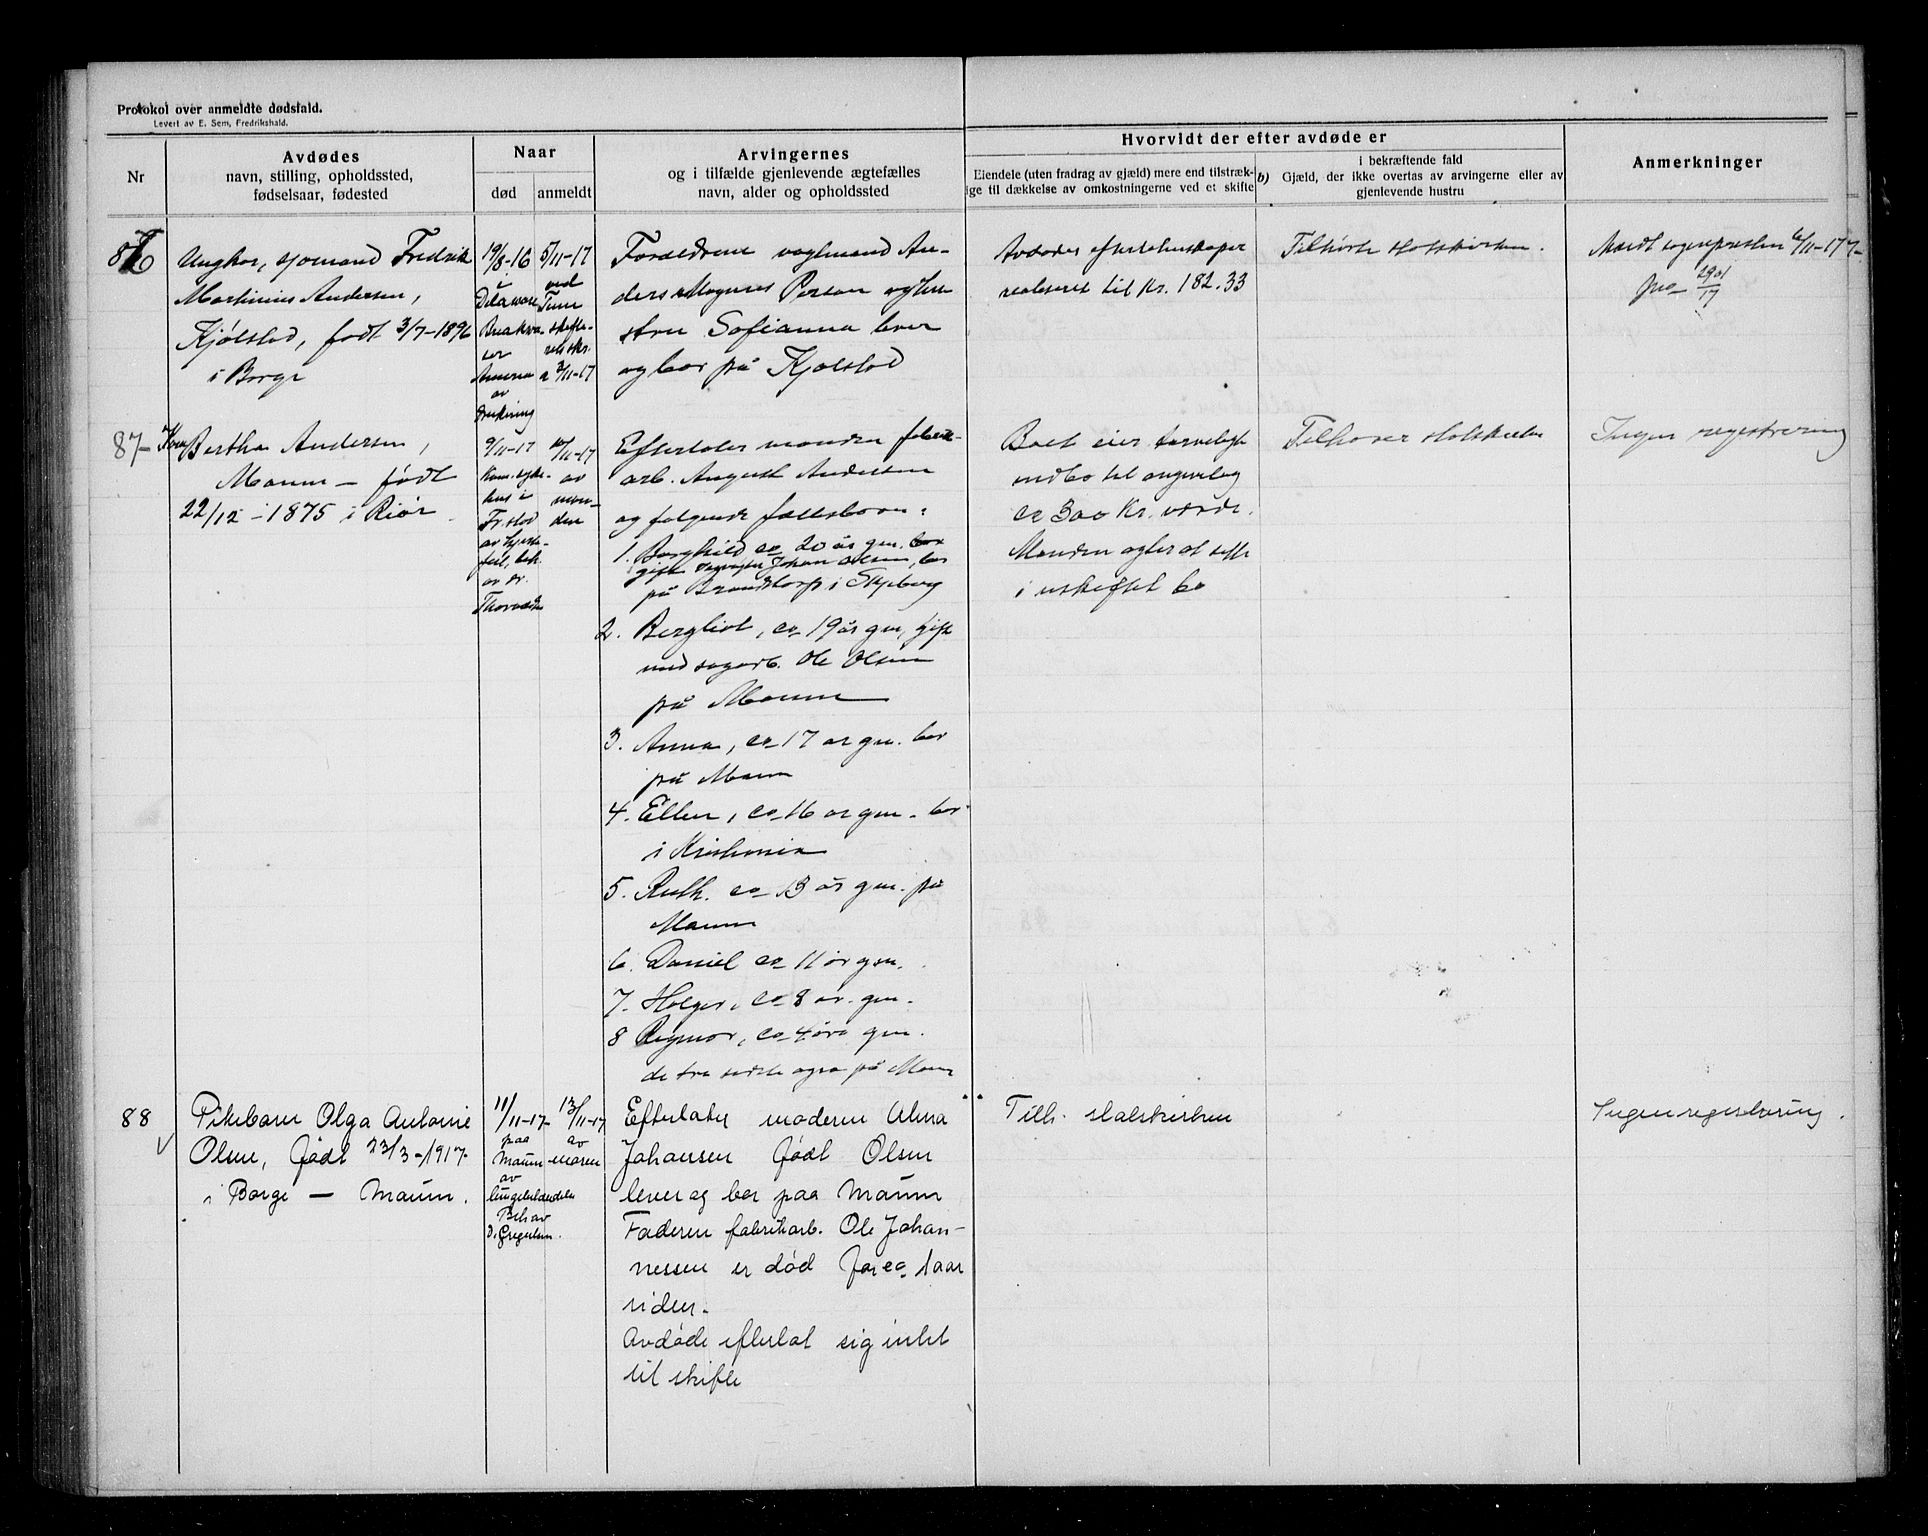 Protokol over anmeldte dødsfald.
Levert av E. Sem, Fredrikshald.
Nr
Avdødes
navn, stilling, opholdssted,
fødselsaar, fødested
Naar
død
anmeldt
Arvingernes
og i tilfælde gjenlevende ægtefælles
navn, alder og opholdssted
Hvorvidt der efter avdøde er
Eiendele (uten fradrag av gjæld) mere end tilstræk-
ige til dækkelse av omkostningerne ved et skifte
b)
i bekræftende fald
Gjæld, der ikke overtas av arvingerne eller av
gjenlevende hustru
Anmerkninger
86
Ungkar, sjømand Fredrik
Martinius Andersen,
Kjølstad, født 3/7-1896
i Borge
19/8-16
i
Delaware
Breakwa
ter
Amerika
av
drukning
5/11-17
ved
Tune
skifte-
ret skr.
a 3/11-17
Forældrene vogtmand An-
ders Magnus Person og Hu
stru Sofianna lever
og bor på Kjølstad
Avdødes efterladenskaper
realiseret til Kr. 182.33
Tilhørte statskirken.
Meldt sognepresten 6/11-17
87-
Kone Bertha Andersen,
Maum - født
22/12-1875 i Risør
9/11-17
Kom. syke-
hus i
Fr.stad
av hjerte-
feil, beh.
av dr.
10/11-17
av
man-
den
Efterlater manden fabrik-
arb. August Andersen
og følgende fællesbarn:
1. Borghild ca 20 år gm. bor
gift Johan Olsen, bor
på Brandstorp i Skjeberg
2. Bergliot, ca 19 år gm, gift
med sagarb. Ole Olsen
på Maum
3. Anna, ca 17 år gm. bor
på Maum
4. Ellen, ca 16 år gm. bor
i Kristiania
5. Ruth. ca 13 år gm. på
Maum
6. Daniel ca 11 år gm.
7. Holger, ca 8 år. gm.
8 Rigmor, ca 4 år gm.
de tre sidste også på Maum
Boet eier tarveligt
indbo til angivelig
ca 300 Kr. værdi.
Manden agter at sitte
i uskiftet bo
Tilhører statskirken
Ingen registrering
88
Pikebarn Olga Antonie
Olsen, født 23/3-1917
i Borge - Maum.
11/11-17
paa
Maum
av
lungebetændelse
Beh av
D. Gregersen.
13/11-17
av
moren
Efterlater moderen Alma
Johansen født Olsen
lever og bor paa Maum
Faderen fabrikarb. Ole Johan-
nessen er død for ca. 1 aar
siden.
Avdøde efterlot sig intet
til skifte
Tilh. statskirken
Ingen registrering.